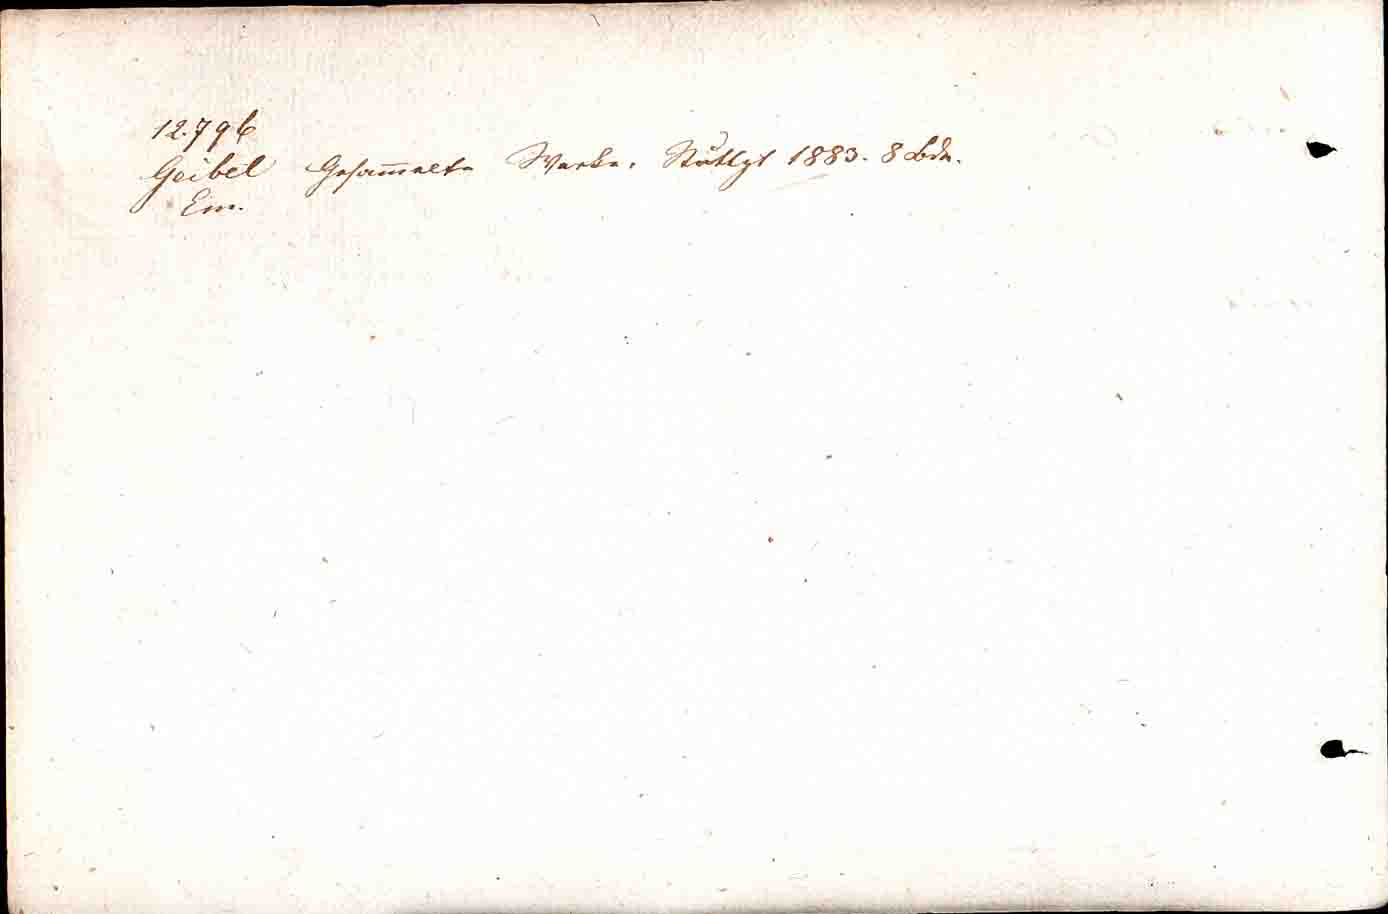 12.796
Geibel Gesam̅elte Werke. Stuttgt 1883. 8 Bde.
Em.